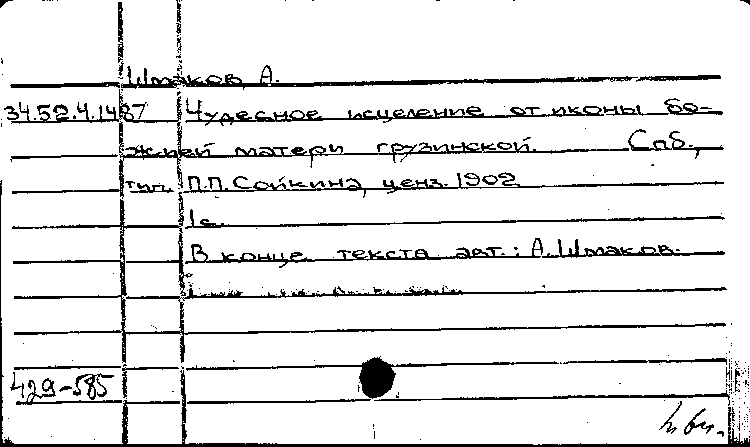 Шмаков, А.
34.52.4.1487 Чудесное исцеление от иконы бо-
жией матери грузинской. Спб.,
тип. П.П. Сойкина, ценз. 1902
1с.
В конце текста авт.: А. Шмаков.
429-585